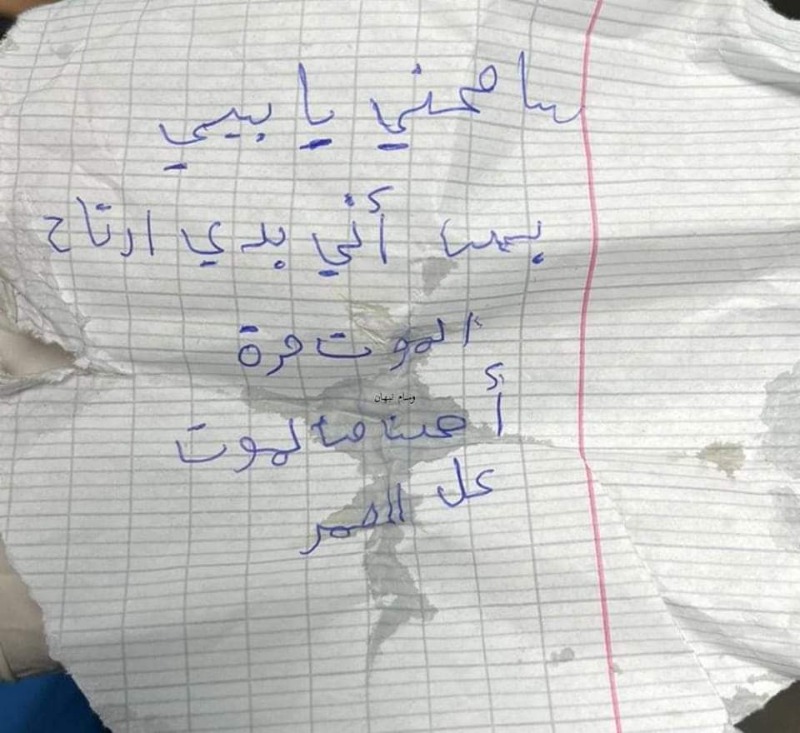 سامحني يا بيي
بس أني بدي ارتاح
الموت مرة
وسام نبهان
أحنا منموت
كل العمر